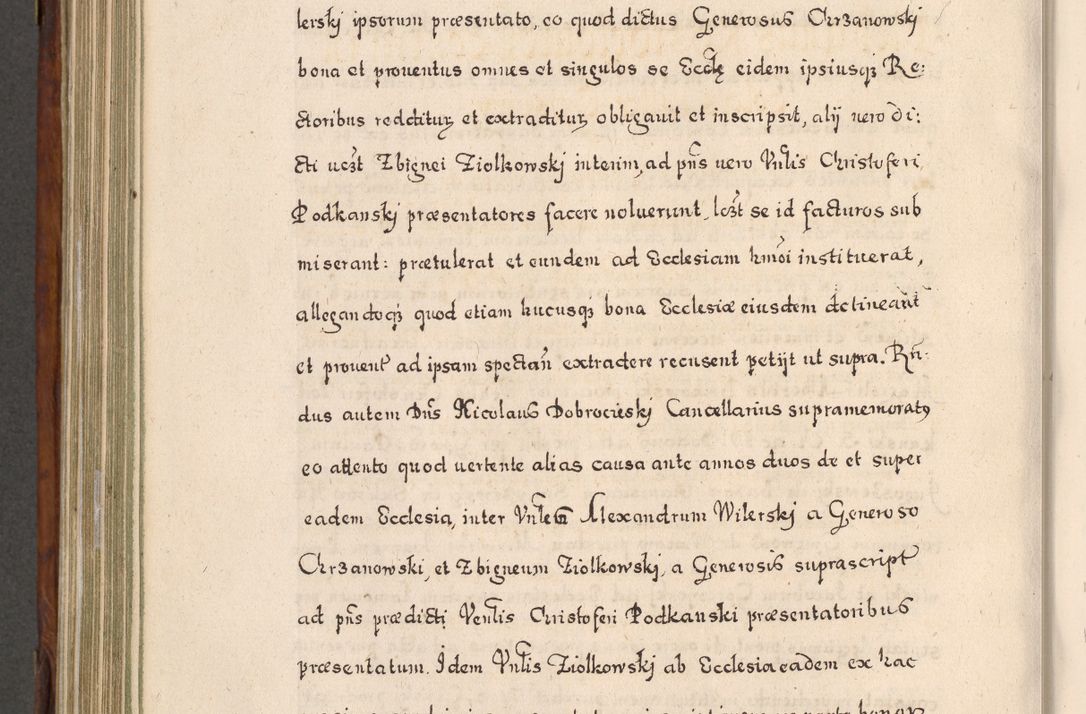 lerskj ipsorum præsentato, eo quod dictus Generosus Chrzanowskj
bona et prouentus omnes et singulos se Eccłę eidem ipsiusqꝫ Re:
ctoribus reddituꝝ et extradituꝝ obligauit et inscripsit, alij uero di:
cti uczt Zbignei Ziolkowskj interim, ad pn̄s uero Vnłis Christoferi
Podkanskj præsentatores facere noluerunt, lczt se id facturos sub
miserant: prætulerat et eundem ad Ecclesiam hmōi instituerat,
allegandoqꝫ quod etiam hucusqꝫ bona Ecclesiæ eiusdem detineant
et prouent9 ad ipsam spectan̄ extradere recusent petijt ut supra. Rn̄:
dus autem Dn̄s Nicolaus Dobrocieskj Cancellarius supramemorat9
eo attento quod uertente alias causa ante annos duos de et super
eadem Ecclesia, inter Vnłem Alexandrum Wilerskj a Generoso
Chrzanowski, et Zbigneum Ziolkowskj, a Generosis suprascript9
ad pn̄s prædicti Venłis Christoferi Podkanski præsentatoribus
præsentatum. Idem Vnłis Ziolkowskj ab Ecclesia eadem ex hac